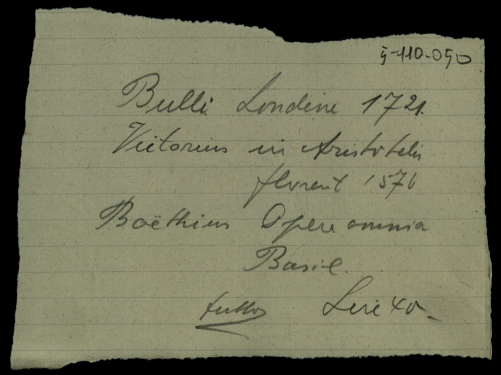 5-110-050
Bulli Londini 1721.
Victorius in Aristotelis
florent 1576
Boëthius Opera omnia
Basil.